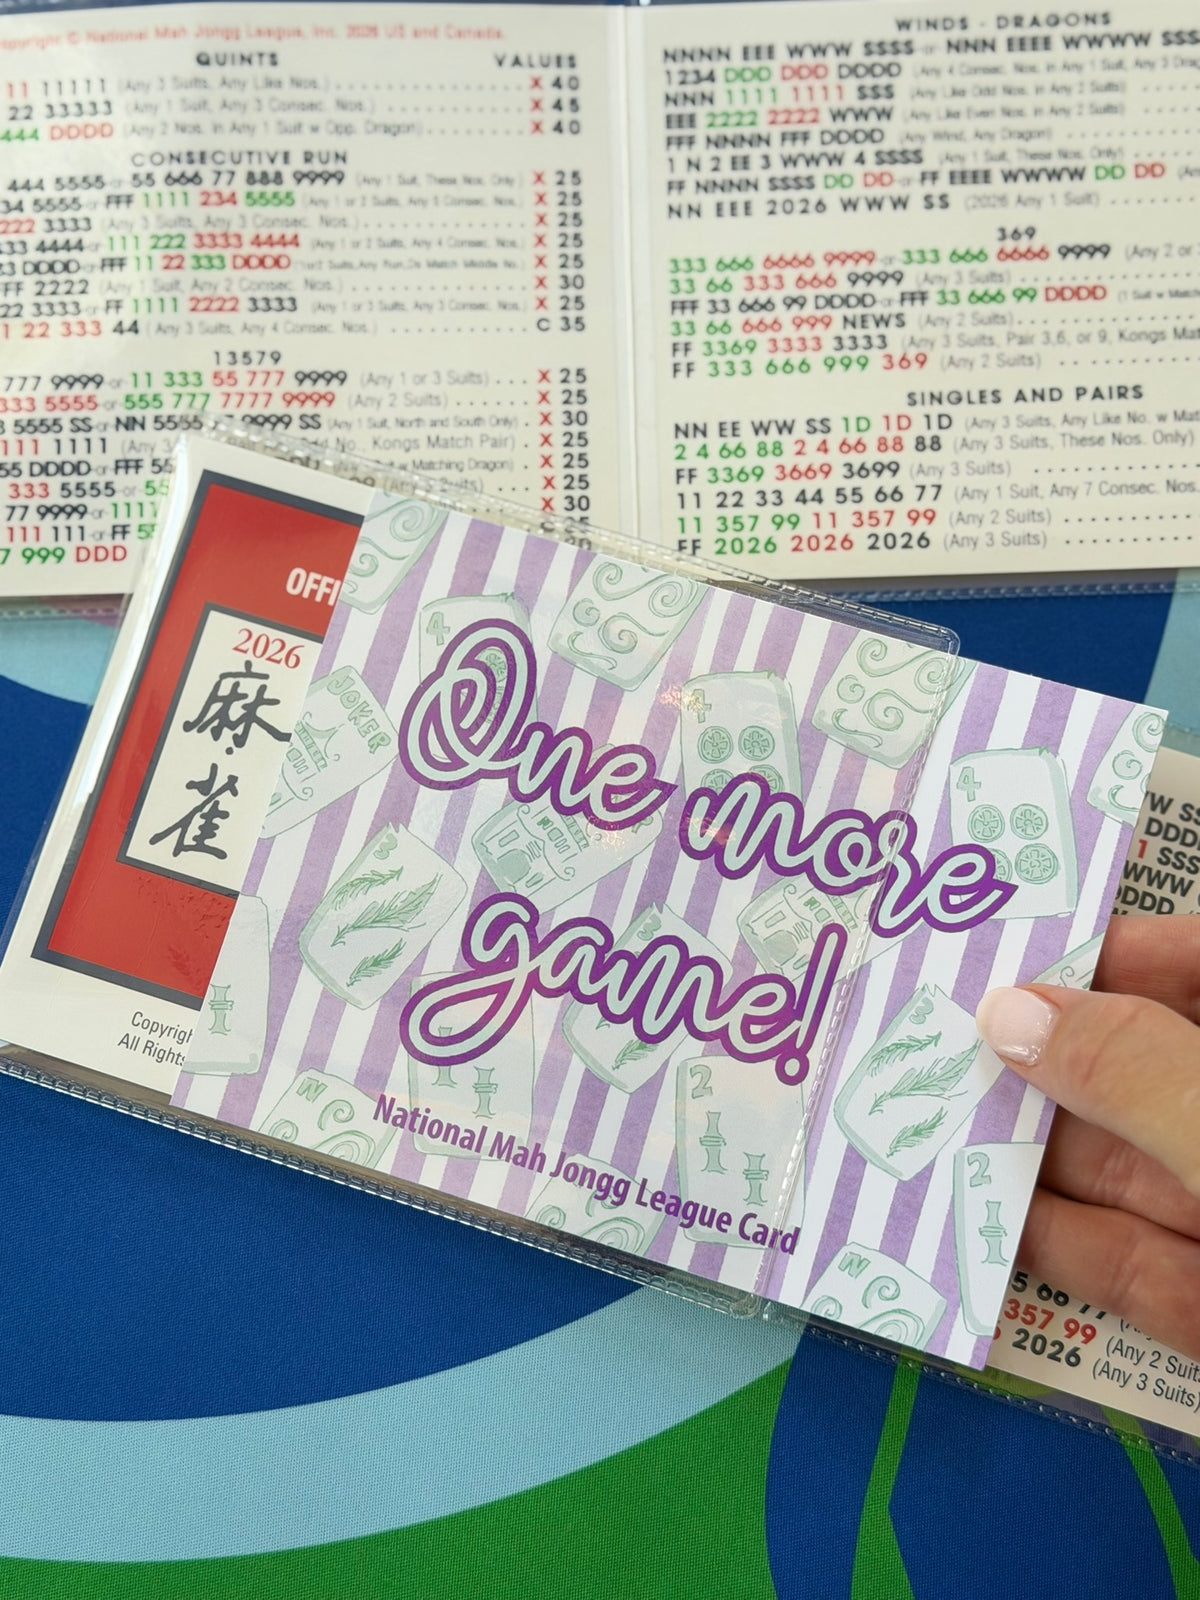 Copyright © National Mah Jongg League, Inc. 2026 US and Canada.
QUINTS VALUES
11 11111 (Any 3 Suits, Any Like Nos.) X 40
22 33333 (Any 1 Suit, Any 3 Consec. Nos.) X 45
444 DDDD (Any 2 Nos. in Any 1 Suit w Opp. Dragon) X 40
CONSECUTIVE RUN
444 5555-or-55 666 77 888 9999 (Any 1 Suit, These Nos. Only) X 25
34 5555-or-FFF 1111 234 5555 (Any 1 or 2 Suits, Any 5 Consec. Nos.) X 25
222 3333 (Any 3 Suits, Any 3 Consec. Nos.) X 25
333 4444-or-111 222 3333 4444 (Any 1 or 2 Suits, Any 4 Consec. Nos.) X 25
33 DDDD-or-FFF 11 22 333 DDDD X 25
FFF 2222 (Any 1 Suit, Any 2 Consec. Nos.) X 30
22 3333-or-FF 1111 2222 3333 (Any 1 or 3 Suits, Any 3 Consec. Nos.) X 25
1 22 333 44 (Any 3 Suits, Any 4 Consec. Nos.) C 35
13579
777 9999-or-11 333 55 777 9999 (Any 1 or 3 Suits) X 25
333 5555-or-555 777 7777 9999 (Any 2 Suits) X 25
3 5555 SS-or-NN 5555 9999 SS (Any 1 Suit, North and South Only) X 30
111 1111 (Any 3 No., Kongs Match Pair) X 25
55 DDDD-or-FFF 55 w Matching Dragon) X 25
333 5555-or-55 (Any 2 Suits) X 25
77 9999-or-1111 X 30
111 111-or-FF 5 C 25
7 999 DDD 30
WINDS - DRAGONS
NNNN EEE WWW SSSS-or-NNN EEEE WWWW SSS
1234 DDD DDD DDDD (Any 4 Consec. Nos. in Any 1 Suit, Any 3 Drag
NNN 1111 1111 SSS (Any Like Odd Nos. in Any 2 Suits)
EEE 2222 2222 WWW (Any Like Even Nos. in Any 2 Suits)
FFF NNNN FFF DDDD (Any Wind, Any Dragon)
1 N 2 EE 3 WWW 4 SSSS (Any 1 Suit, These Nos. Only)
FF NNNN SSSS DD DD-or-FF EEEE WWWW DD DD (An
NN EEE 2026 WWW SS (2026 Any 1 Suit)
369
333 666 6666 9999-or-333 666 6666 9999 (Any 2 or
33 66 333 666 9999 (Any 3 Suits)
FFF 33 666 99 DDDD-or-FFF 33 666 99 DDDD (1 Suit w Match
33 66 666 999 NEWS (Any 2 Suits)
FF 3369 3333 3333 (Any 3 Suits, Pair 3,6, or 9, Kongs Mat
FF 333 666 999 369 (Any 2 Suits)
SINGLES AND PAIRS
NN EE WW SS 1D 1D 1D (Any 3 Suits, Any Like No. w Mat
2 4 66 88 2 4 66 88 88 (Any 3 Suits, These Nos. Only)
FF 3369 3669 3699 (Any 3 Suits)
11 22 33 44 55 66 77 (Any 1 Suit, Any 7 Consec. Nos.
11 357 99 11 357 99 (Any 2 Suits)
FF 2026 2026 2026 (Any 3 Suits)
OFFI
2026
麻
雀
Copyrigh
All Rights
One more
game!
National Mah Jongg League Card
JOKER
WW SS
DDDD
1 SSS
WWWW
DDDD
5 66 77
357 99 (Any 2 Suits
2026 (Any 3 Suits)